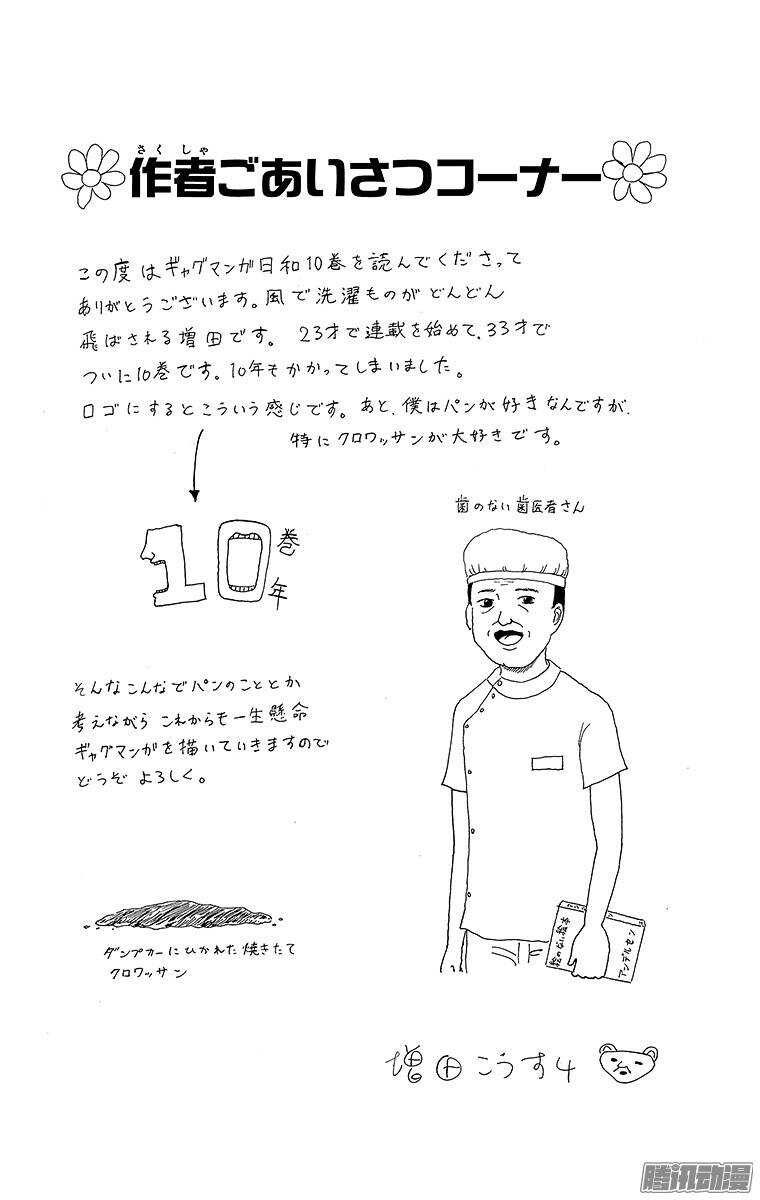 さくしゃ
作者ごあいさつコーナー
この度はギャグマンガ日和10巻を読んでくださって
ありがとうございます。風で洗濯ものがどんどん
飛ばされる増田です。 23才で連載を始めて、33才で
ついに10巻です。10年もかかってしまいました。
ロゴにするとこういう感じです。あと、僕はパンが好きなんですが、
特にクロワッサンが大好きです。
10巻年
歯のない歯医者さん
そんなこんなでパンのこととか
考えながら これからも一生懸命
ギャグマンガを描いていきますので
どうぞ よろしく。
絵のない絵本
アンデルセン
ダンプカーにひかれた焼きたて
クロワッサン
増田こうすけ
腾讯动漫